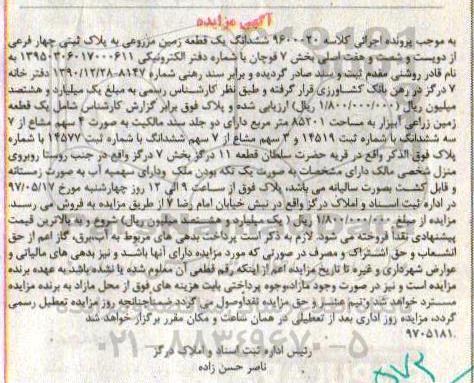 آگهی مزایده
به موجب پرونده اجرائی کلاسه ۹۶۰۰۰۲۰ ششدانگ یک قطعه زمین مزروعی به پلاک ثبتی چهار فرعی
از دویست و شصت و هفت اصلی بخش ۷ قوچان با شماره دفتر الکترونیکی ۱۳۹۵۲۰۳۰۶۰۱۷۰۰۰۶۱۱ به
نام قادر روشنی مقدم ثبت و سند صادر گردیده و برابر سند رهنی شماره ۸۱۴۷-۱۳۹۰/۱۲/۲۸ دفتر خانه
۷ درگز در رهن بانک کشاورزی قرار گرفته و طبق نظر کارشناس رسمی به مبلغ یک میلیارد و هشتصد
میلیون ریال (۱/۸۰۰/۰۰۰/۰۰۰ ریال) ارزیابی شده و پلاک فوق برابر گزارش کارشناس شامل یک قطعه
زمین زراعی آبیزار به مساحت ۸۵۲۰۱ متر مربع دارای دو جلد سند مالکیت به صورت ۴ سهم مشاع از ۷
سه ششدانگ با شماره ثبت ۱۴۵۱۹ و ۳ سهم مشاع از ۷ سهم ششدانگ با شماره ثبت ۱۴۵۷۷ با شماره
پلاک فوق الذکر واقع در قریه حضرت سلطان قطعه ۱۱ درگز بخش ۷ درگز واقع در جنب روستا روبروی
منزل شخصی مالک دارای مشخصات به صورت یک تکه بودن ملک ودارای سهمیه آب به صورت زمستانه
و قابل کشت بصورت سالیانه می باشد، پلاک فوق از ساعت ۹ الی ۱۲ روز چهارشنبه مورخ ۹۷/۰۵/۱۷
در اداره ثبت اسناد و املاک درگز واقع در نبش خیابان امام رضا ۷ از طریق مزایده به فروش می رسد.
مزایده از مبلغ ۱/۸۰۰/۰۰۰/۰۰۰ ریال ( یک میلیارد و هشتصد میلیون ریال) شروع و به بالاترین قیمت
پیشنهادی نقدا فروخته می شود. لازم به ذکر است پرداخت بدهی های مربوط به آب،برق، گاز اعم از حق
انشعاب و حق اشتراک و مصرف در صورتی که مورد مزایده دارای آنها باشد و نیز بدهی های مالیاتی و
عوارض شهرداری و غیره تا تاریخ مزایده اعم از اینکه رقم قطعی آن معلوم شده یا نشده باشد به عهده برنده
مزایده است و نیز در صورت وجود مازاد،وجوه پرداختی بابت هزینه های فوق از محل مازاد به برنده مزایده
مسترد خواهد شد و نیم عشر و حق مزایده نقداوصول می گردد ضمناچنانچه روز مزایده تعطیل رسمی
گردد، مزایده روز اداری بعد از تعطیلی در همان ساعت و مکان مقرر برگزار خواهد شد
۹۷۰۵۱۸۱.
رئیس اداره ثبت اسناد و املاک درگز
ناصر حسن زاده
۰۲۱-۸۸۳۴۹۶۷۰-۵